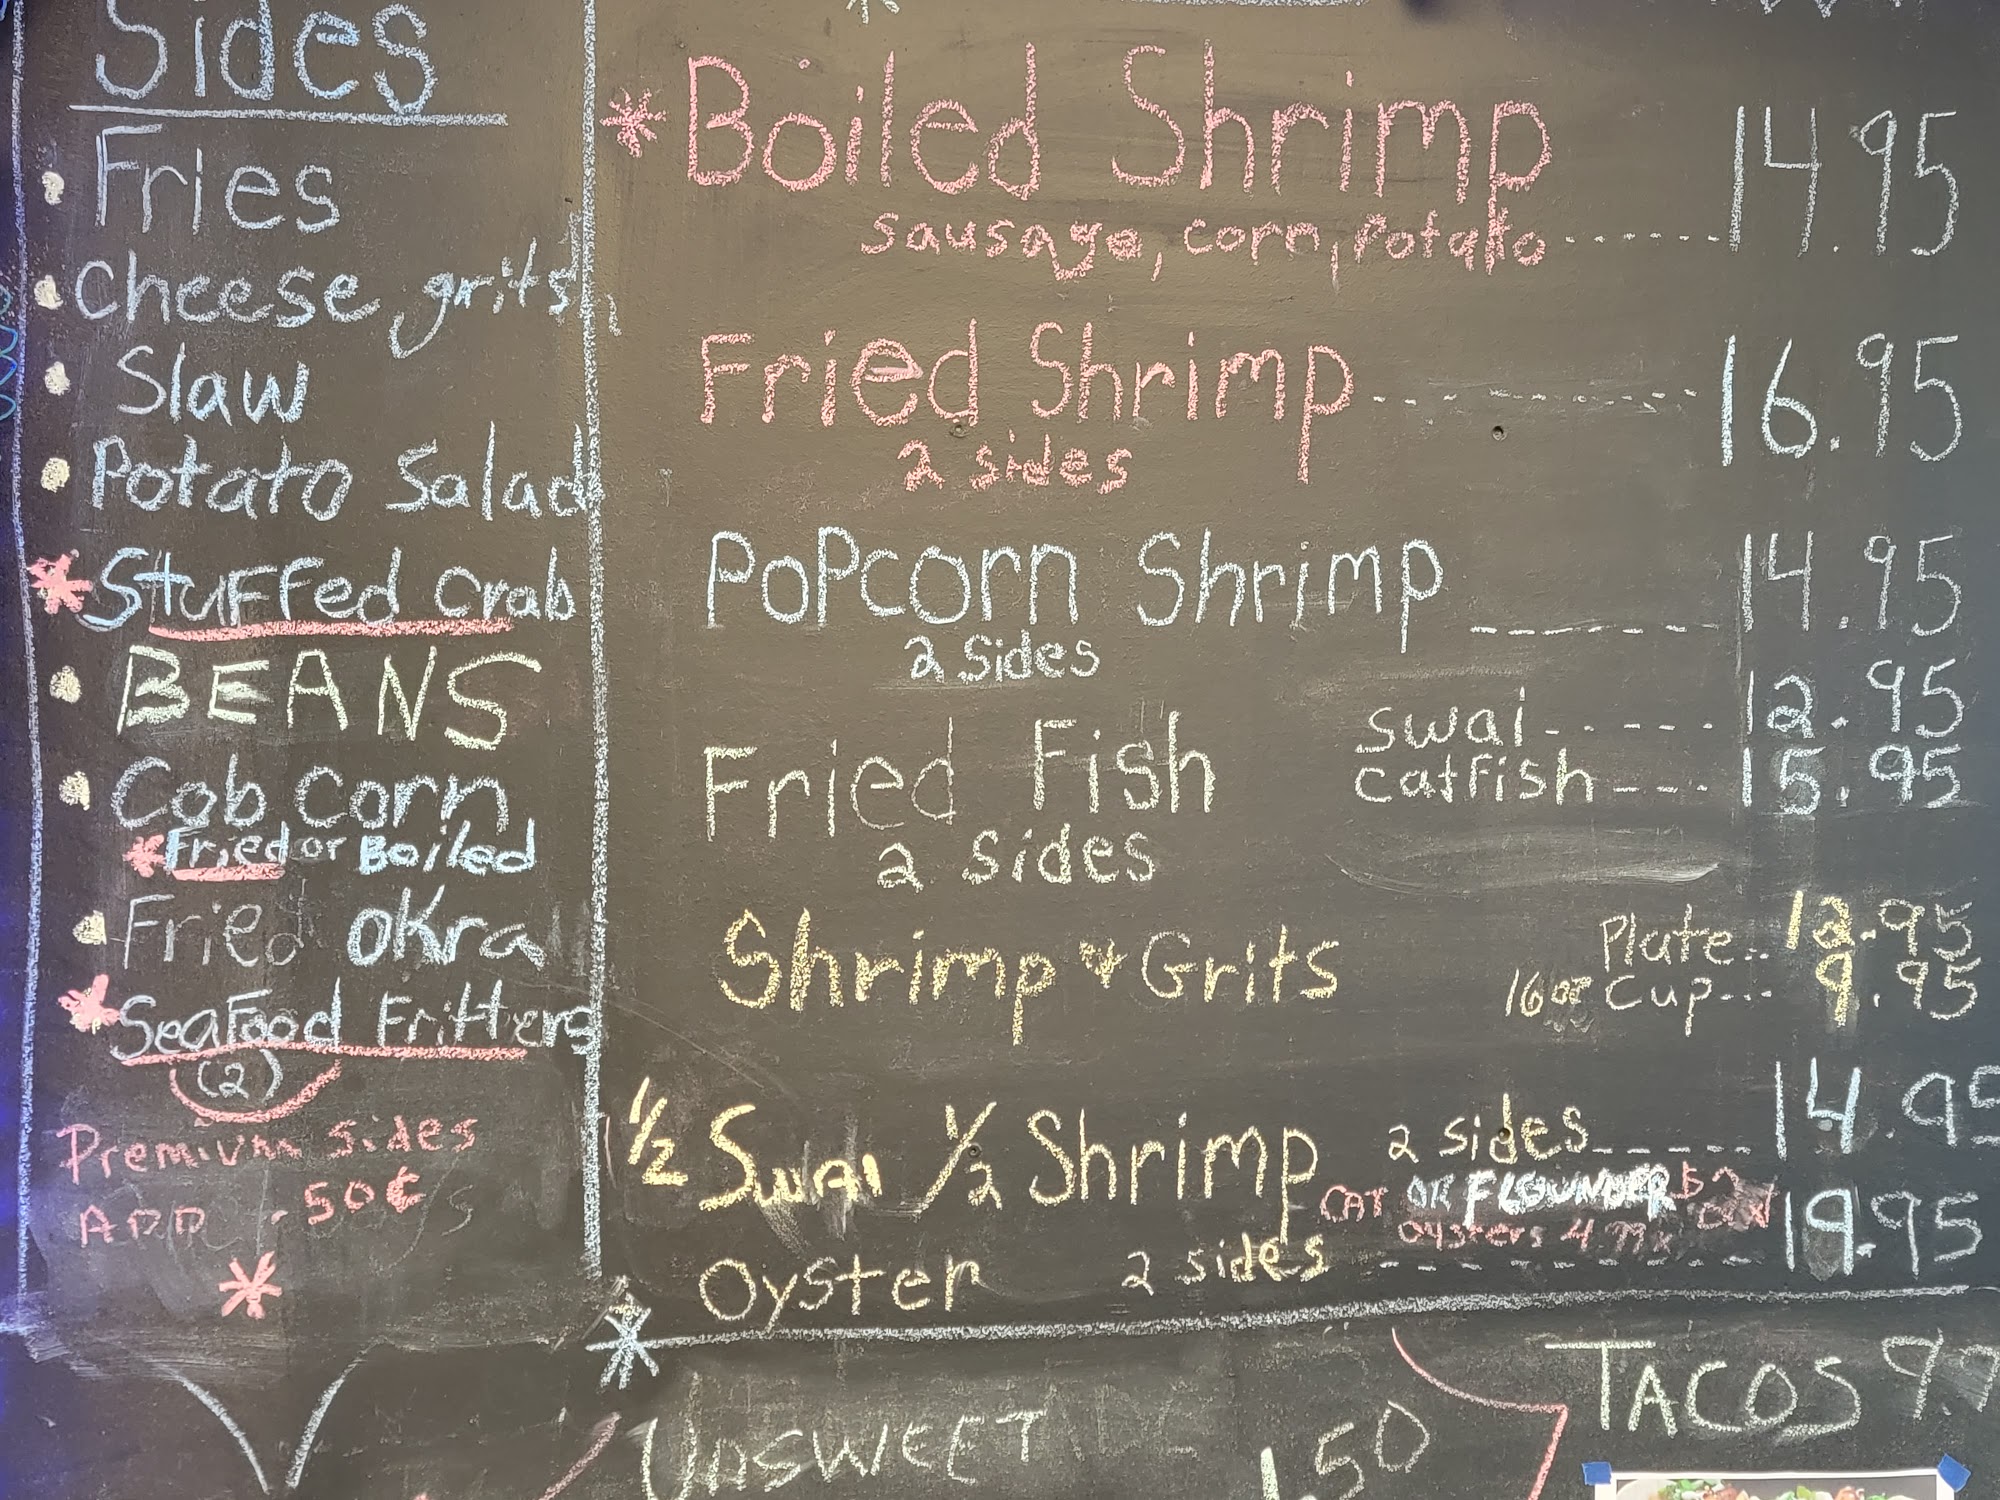 Sides
Fries
Cheese grits
Slaw
Potato Salad
* Stuffed Crab
BEANS
Cob Corn
* Fried or Boiled
Fried Okra
* Seafood Fritters
(2)
Premium sides
ADD .50¢
*
* Boiled Shrimp
sausage, corn, potato ...... 14.95
Fried Shrimp ---------- 16.95
2 sides
PoPcorn Shrimp ------- 14.95
2 Sides
Fried Fish
2 sides
swai ------ 12.95
catfish ---- 15.95
Shrimp & Grits
Plate .. 12.95
16oz Cup --- 9.95
1/2 Swai 1/2 Shrimp 2 sides ----- 14.95
CAT OR FLOUNDER
Oysters
Oyster 2 sides -------- 19.95
*
TACOS
UNSWEET 1.50